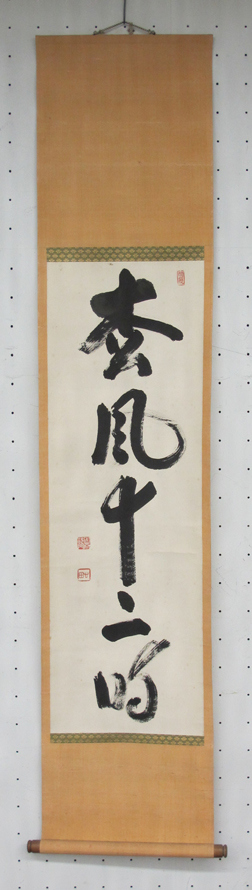 枩風十二時